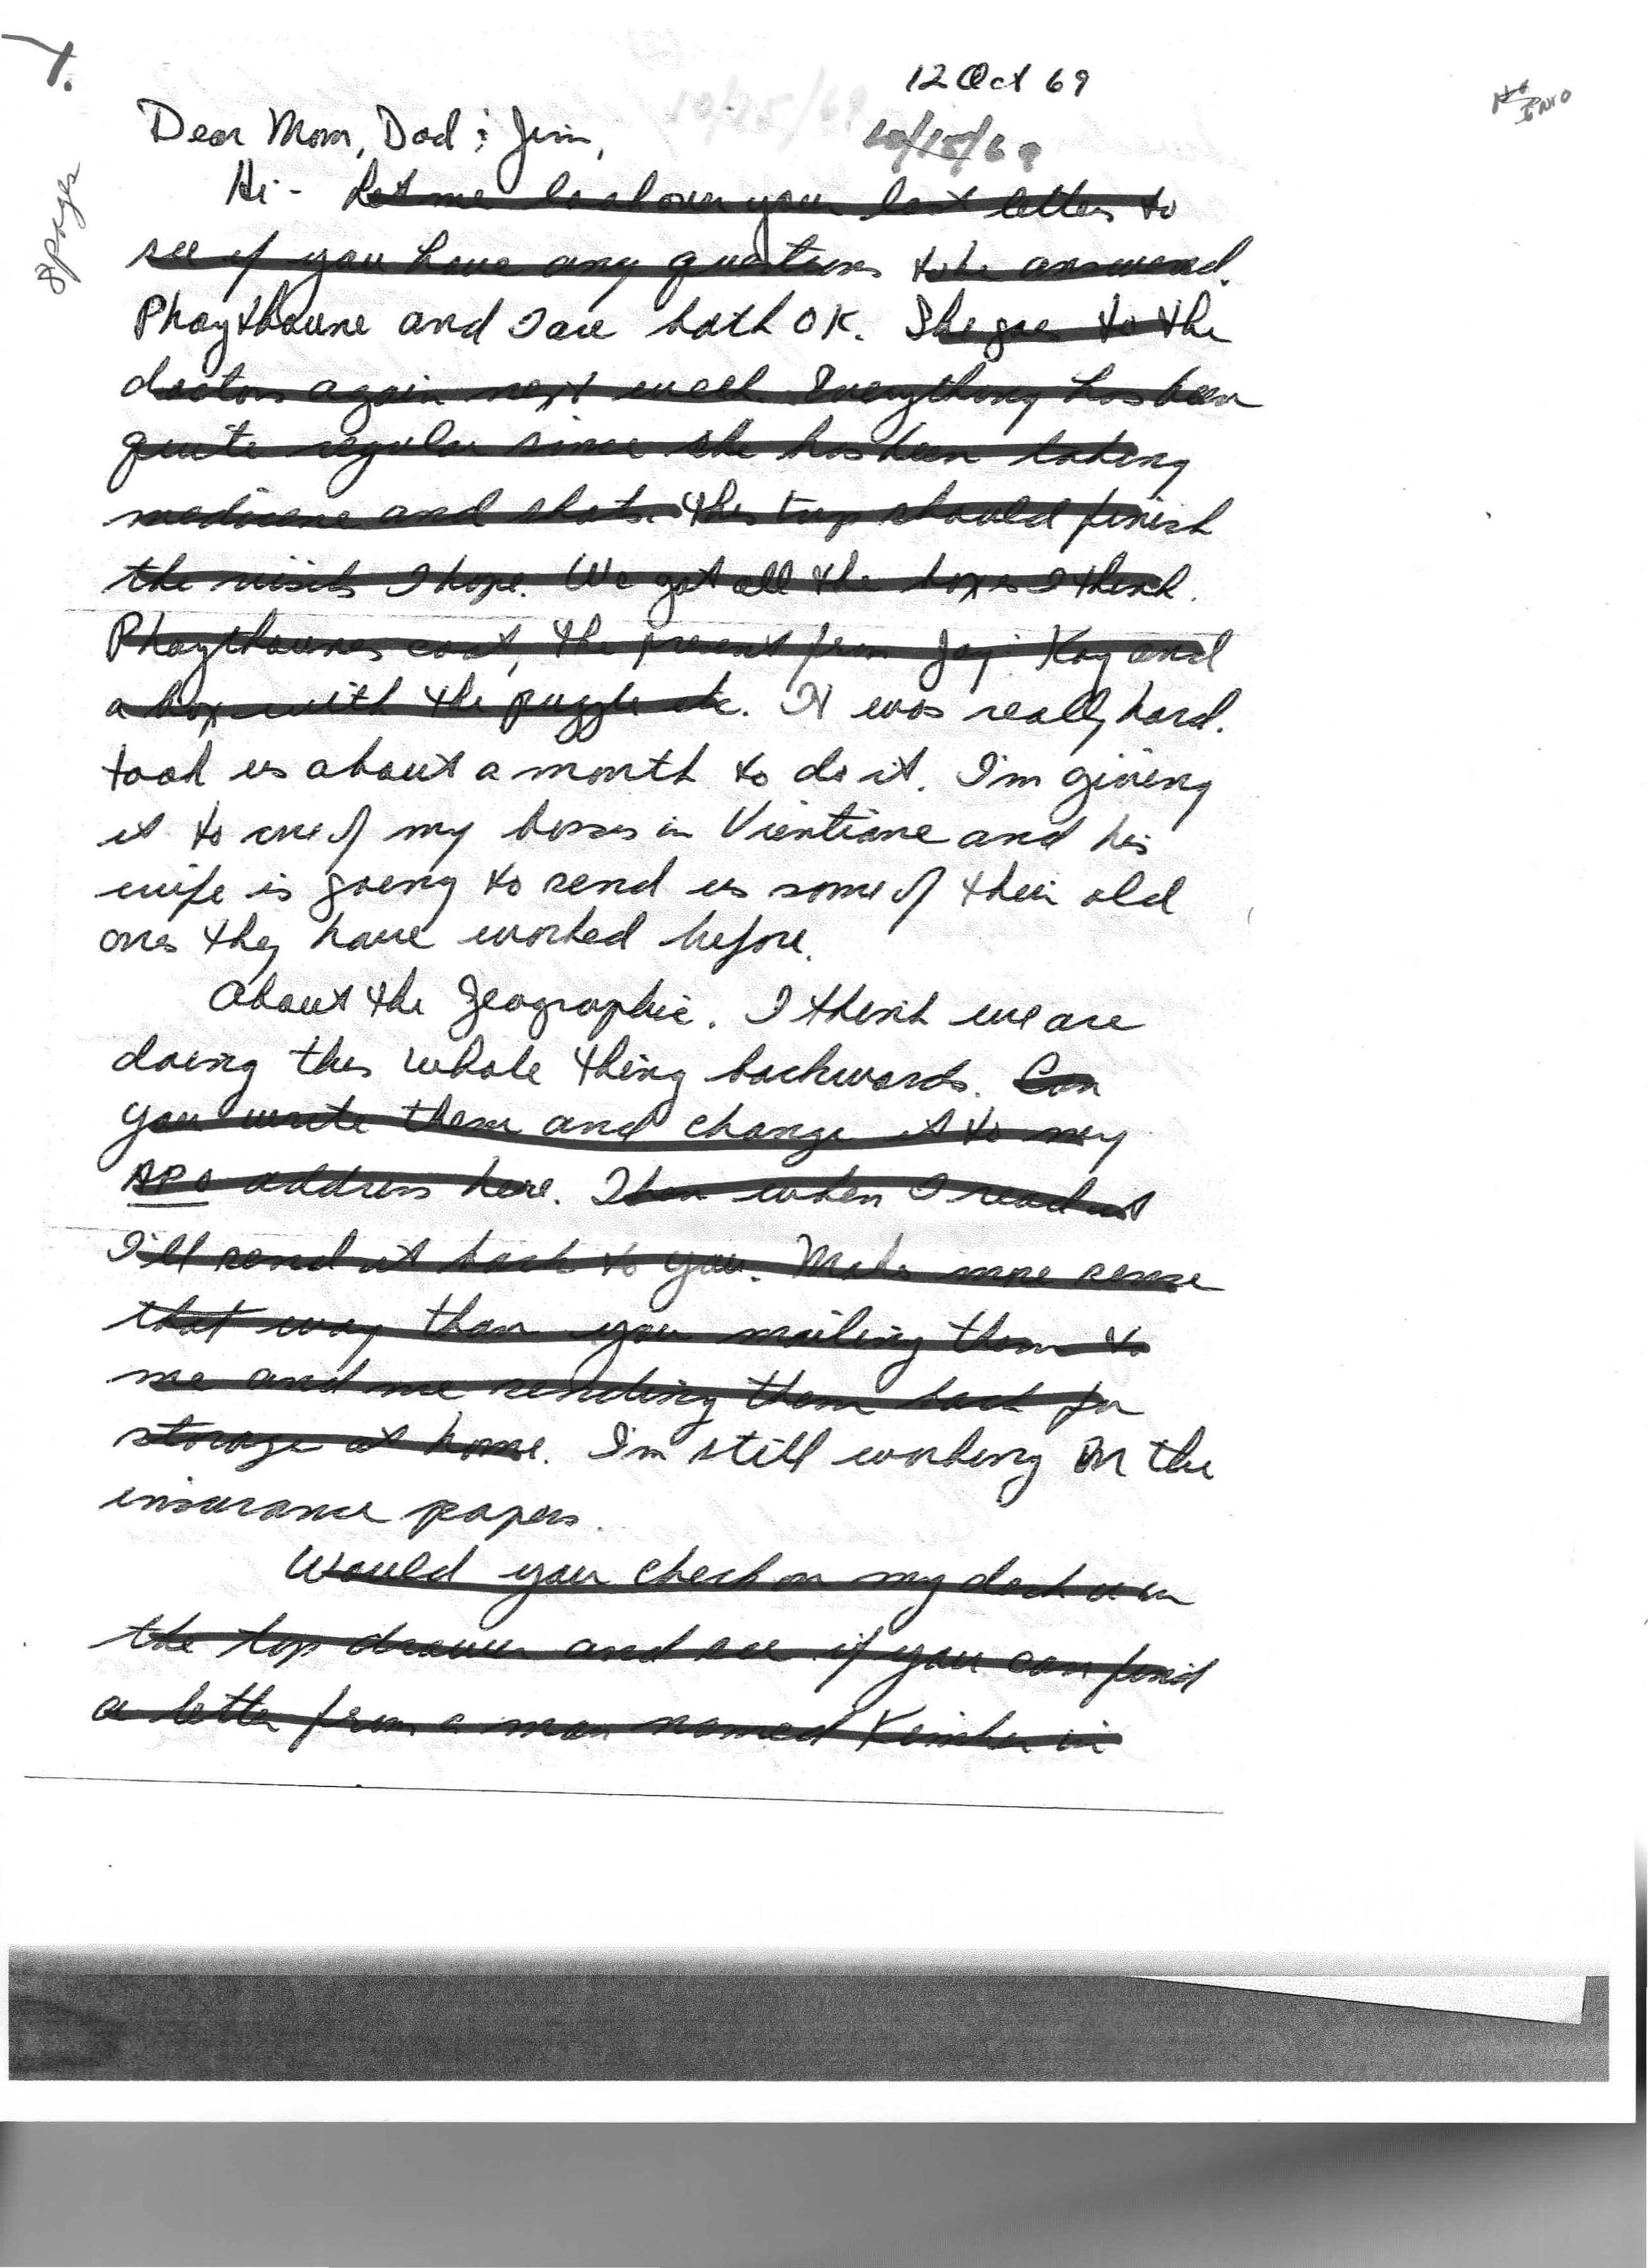 1.
8 pages
12 Oct 69
10/15/69
Dear Mom, Dad & Jim,
Hi - Let me look over your last letter to
see if you have any questions to be answered.
Phaythoune and I are both OK. She goes to the
doctor again next week. Everything has been
quite regular since she has been taking
medicene and shots. This trip should finish
the visits I hope. We got all the boxes I think.
Phaythounes coat, the present from Jay & Kay and
a box with the puzzle etc. It was really hard.
took us about a month to do it. I'm giving
it to one of my bosses in Vientiane and his
wife is going to send us some of their old
ones they have worked before.
About the Geographic. I think we are
doing this whole thing backwards. Can
you write them and change it to my
APO address here. Then when I read it
I'll send it back to you. Make more sense
that way than you mailing them to
me and me sending them back for
storage at home. I'm still working on the
insurance papers.
Would you check on my desk or in
the top drawer and see if you can find
a letter from a man named in